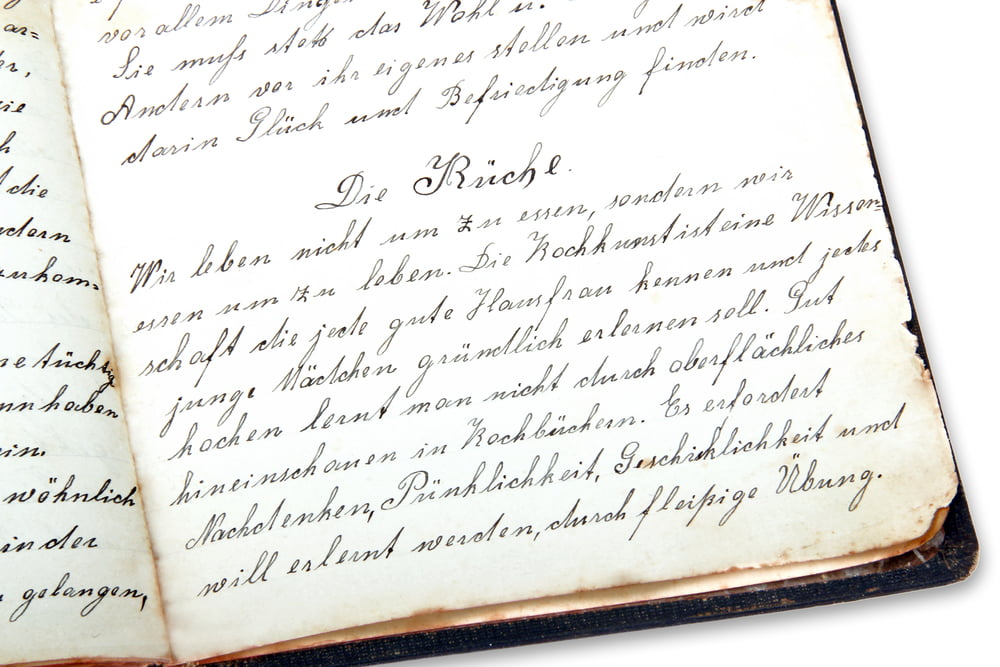 ar=
er,
sie
h
die
ndern
zukom=
ne tüchtig
nn haben
ein.
wöhnlich
in der
gelangen,
vor allem Dingen
Sie muſs stets das Wohl u.
Andern vor ihr eigenes stellen und wird
darin Glück und Befriedigung finden.
Die Küche.
Wir leben nicht um zu essen, sondern wir
essen um zu leben. Die Kochkunst ist eine Wissen=
schaft die jede gute Hausfrau kennen und jedes
junge Mädchen gründlich erlernen soll. Gut
kochen lernt man nicht durch oberflächliches
hineinschauen in Kochbüchern. Es erfordert
Nachdenken, Pünklichkeit, Geschiklichkeit und
will erlernt werden, durch fleißige Übung.